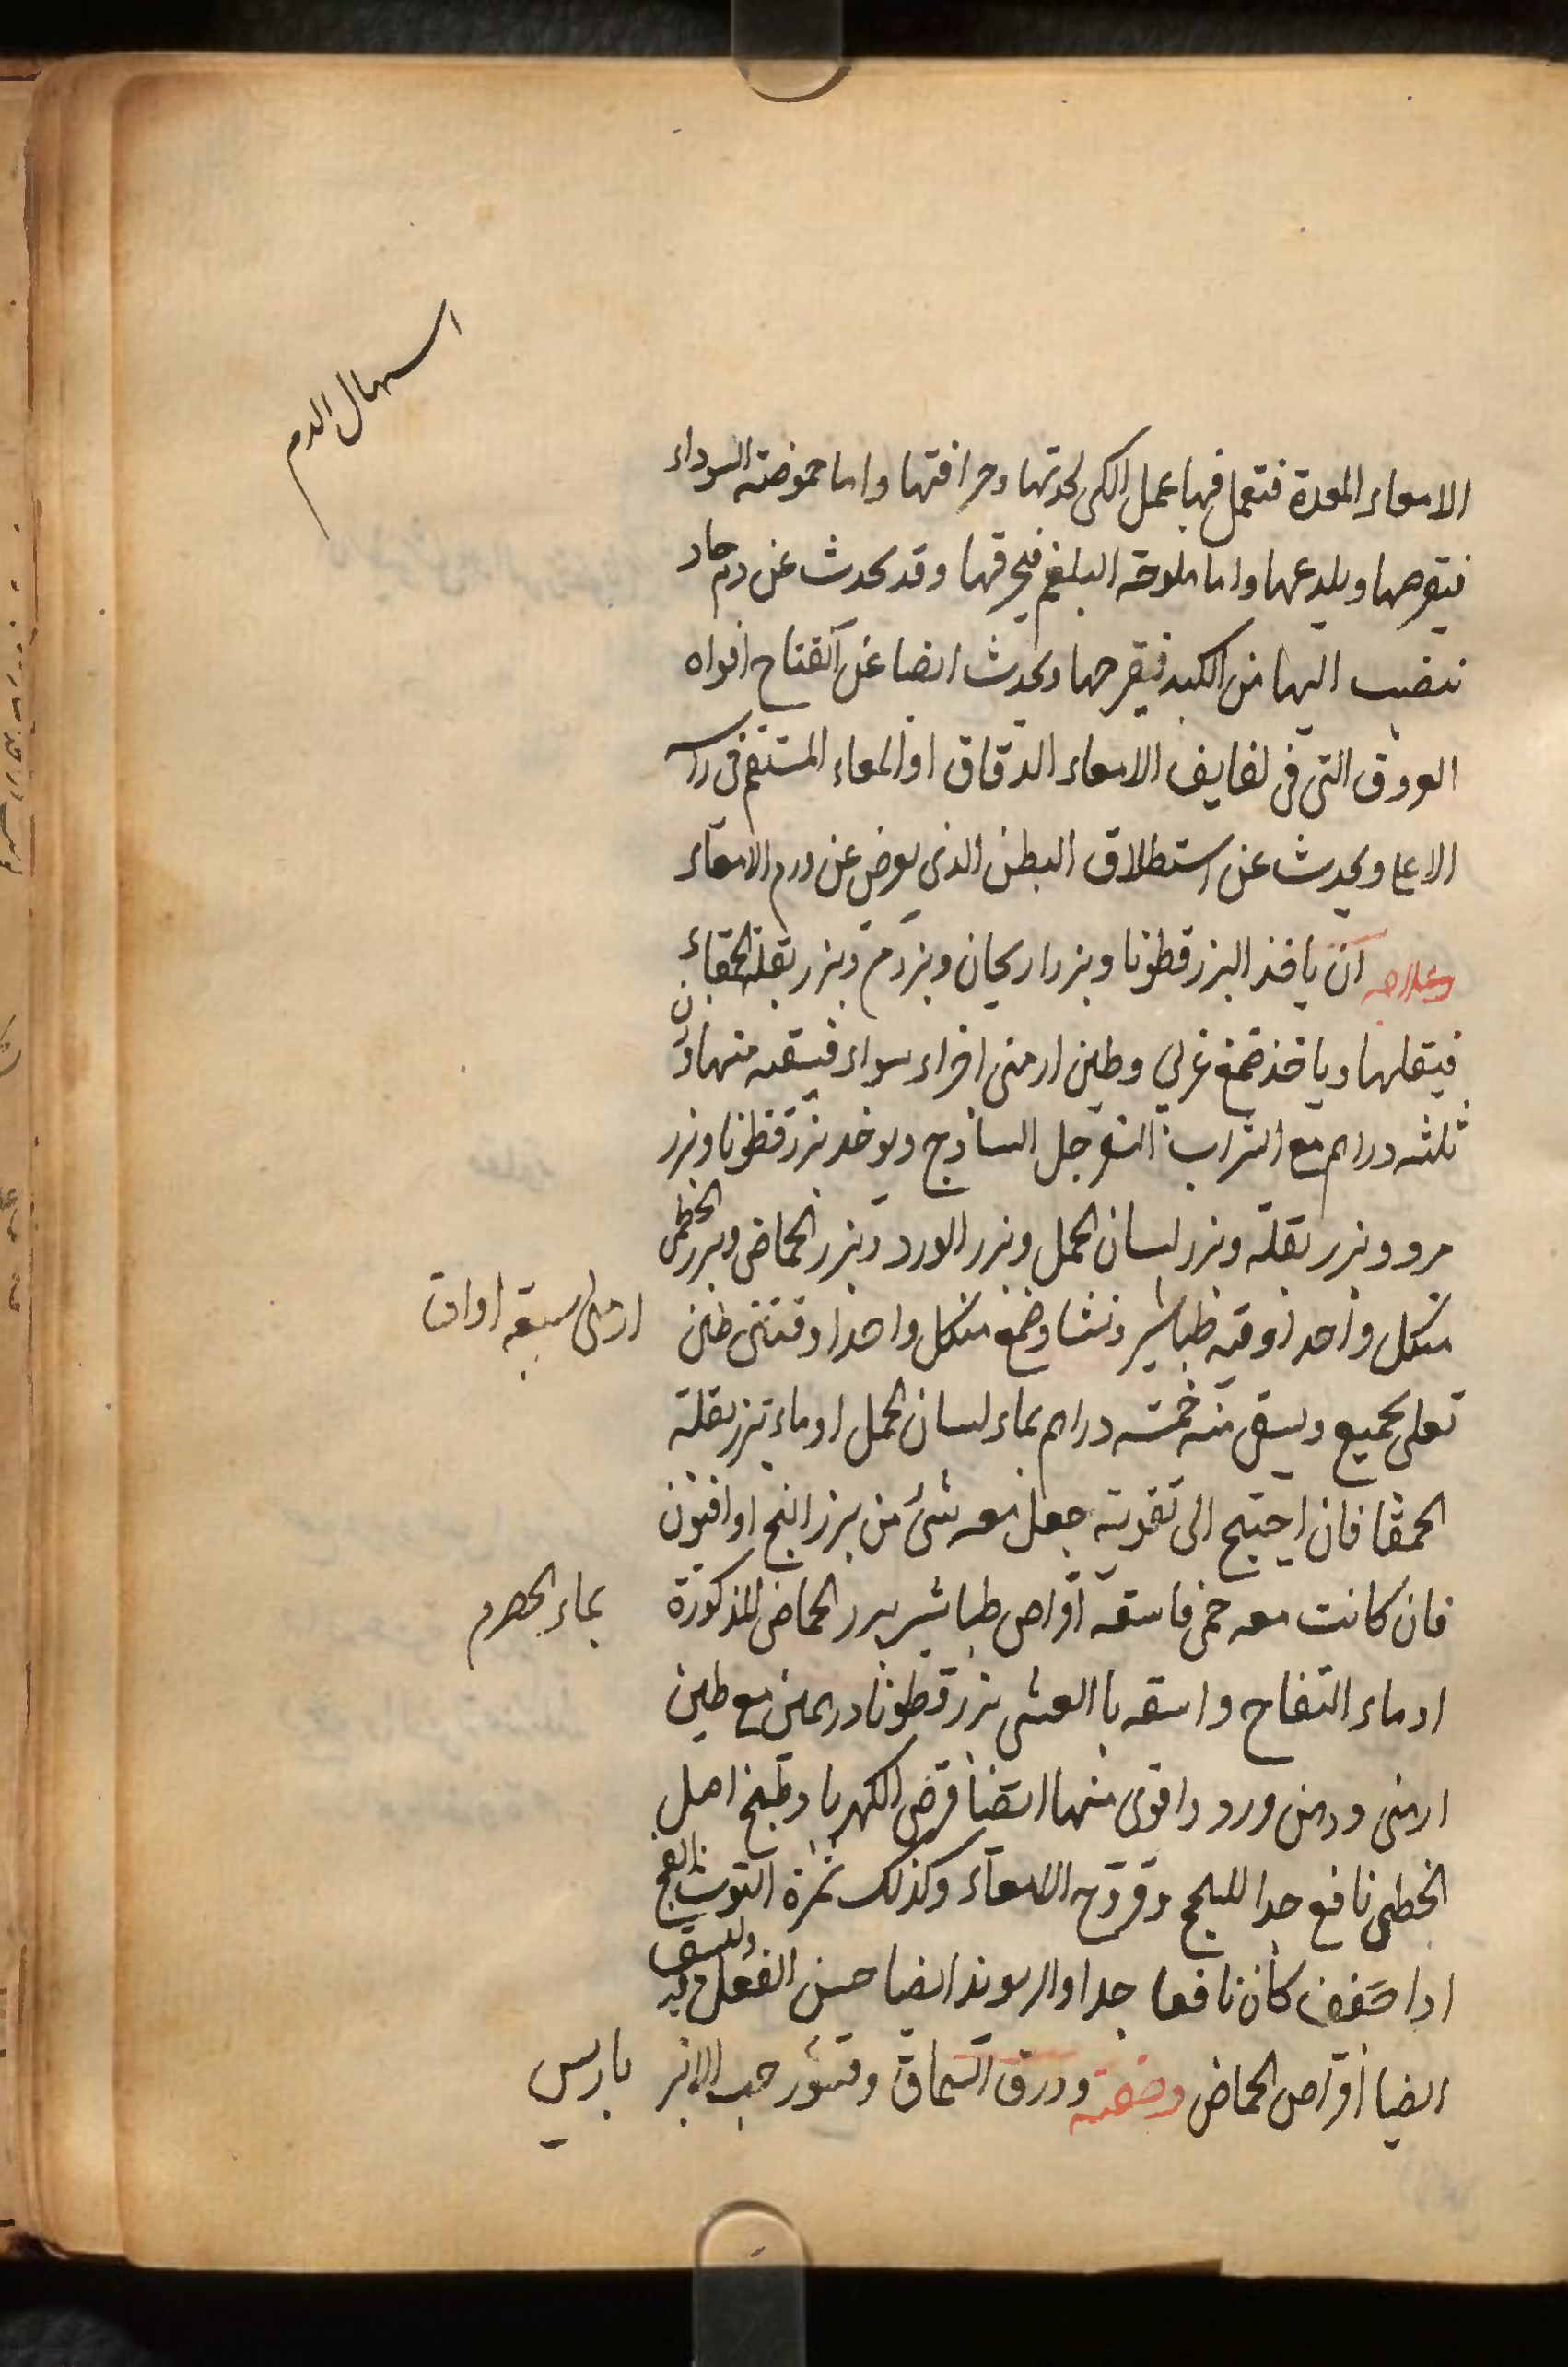 اسهال الدم
الامعاء المعدة فتعمل فيها عمل الكى لحدتها وحرافتها واما حموضة السوداء
فيقرحها ويلدعها واما ملوحة البلغم فيحرقها وقد يحدث عن دم حاد
ينصب اليها من الكبد فيقرحها ويحدث ايضا عن انفتاح افواه
العروق التى فى لفايف الامعاء الدقاق او المعاء المستقيم فى راسه
الاعلا ويحدث عن استطلاق البطن الذى يعرض عن ورم الامعاء
وعلاجه ان ياخذ البزرقطونا وبزر اريحان وبزر مر وبزر بقلة الحمقاء
فيقلها وياخذ صمغ عربي وطين ارمنى اجزاء سواء فيسقيه منها وزن
ثلثه دراهم مع الشراب السفرجل الساذج ويوخد بزرقطونا وبزر
مرو وبزر بقله وبزر لسان الحمل وبزر الورد وبزر الحماض وبزر الخطمى
من كل واحد اوقيه طباشير ونشا وصمغ من كل واحد اوقتين طين ارمنى سبعه اواق
تقلى الجميع ويسقى منه خمسه دراهم بماء لسان الحمل او ماء بزر بقلة
الحمقا فان احتيج الى تقويته جعل معه شئ من بزر البنج او افيون
فان كانت معه حمى فاسقه اقراص طباشير ببزر الحماض المذكورة بماء الحصرم
او ماء التفاح واسقه با العشى بزرقطونا درهمين مع طين
ارمنى ودهن ورد واقوى منها ايضا قرص الكهربا وطبيخ اصل
الخطمى نافع جدا للسحج وقروح الامعاء وكذلك ثمرة التوت الفج
ادا جفف كان نافعا جدا والريوند ايضا حسن الفعل فيه وليسقى
ايضا اقراص الحماض وصفته وورق السماق وقشور حب الانبر باريس